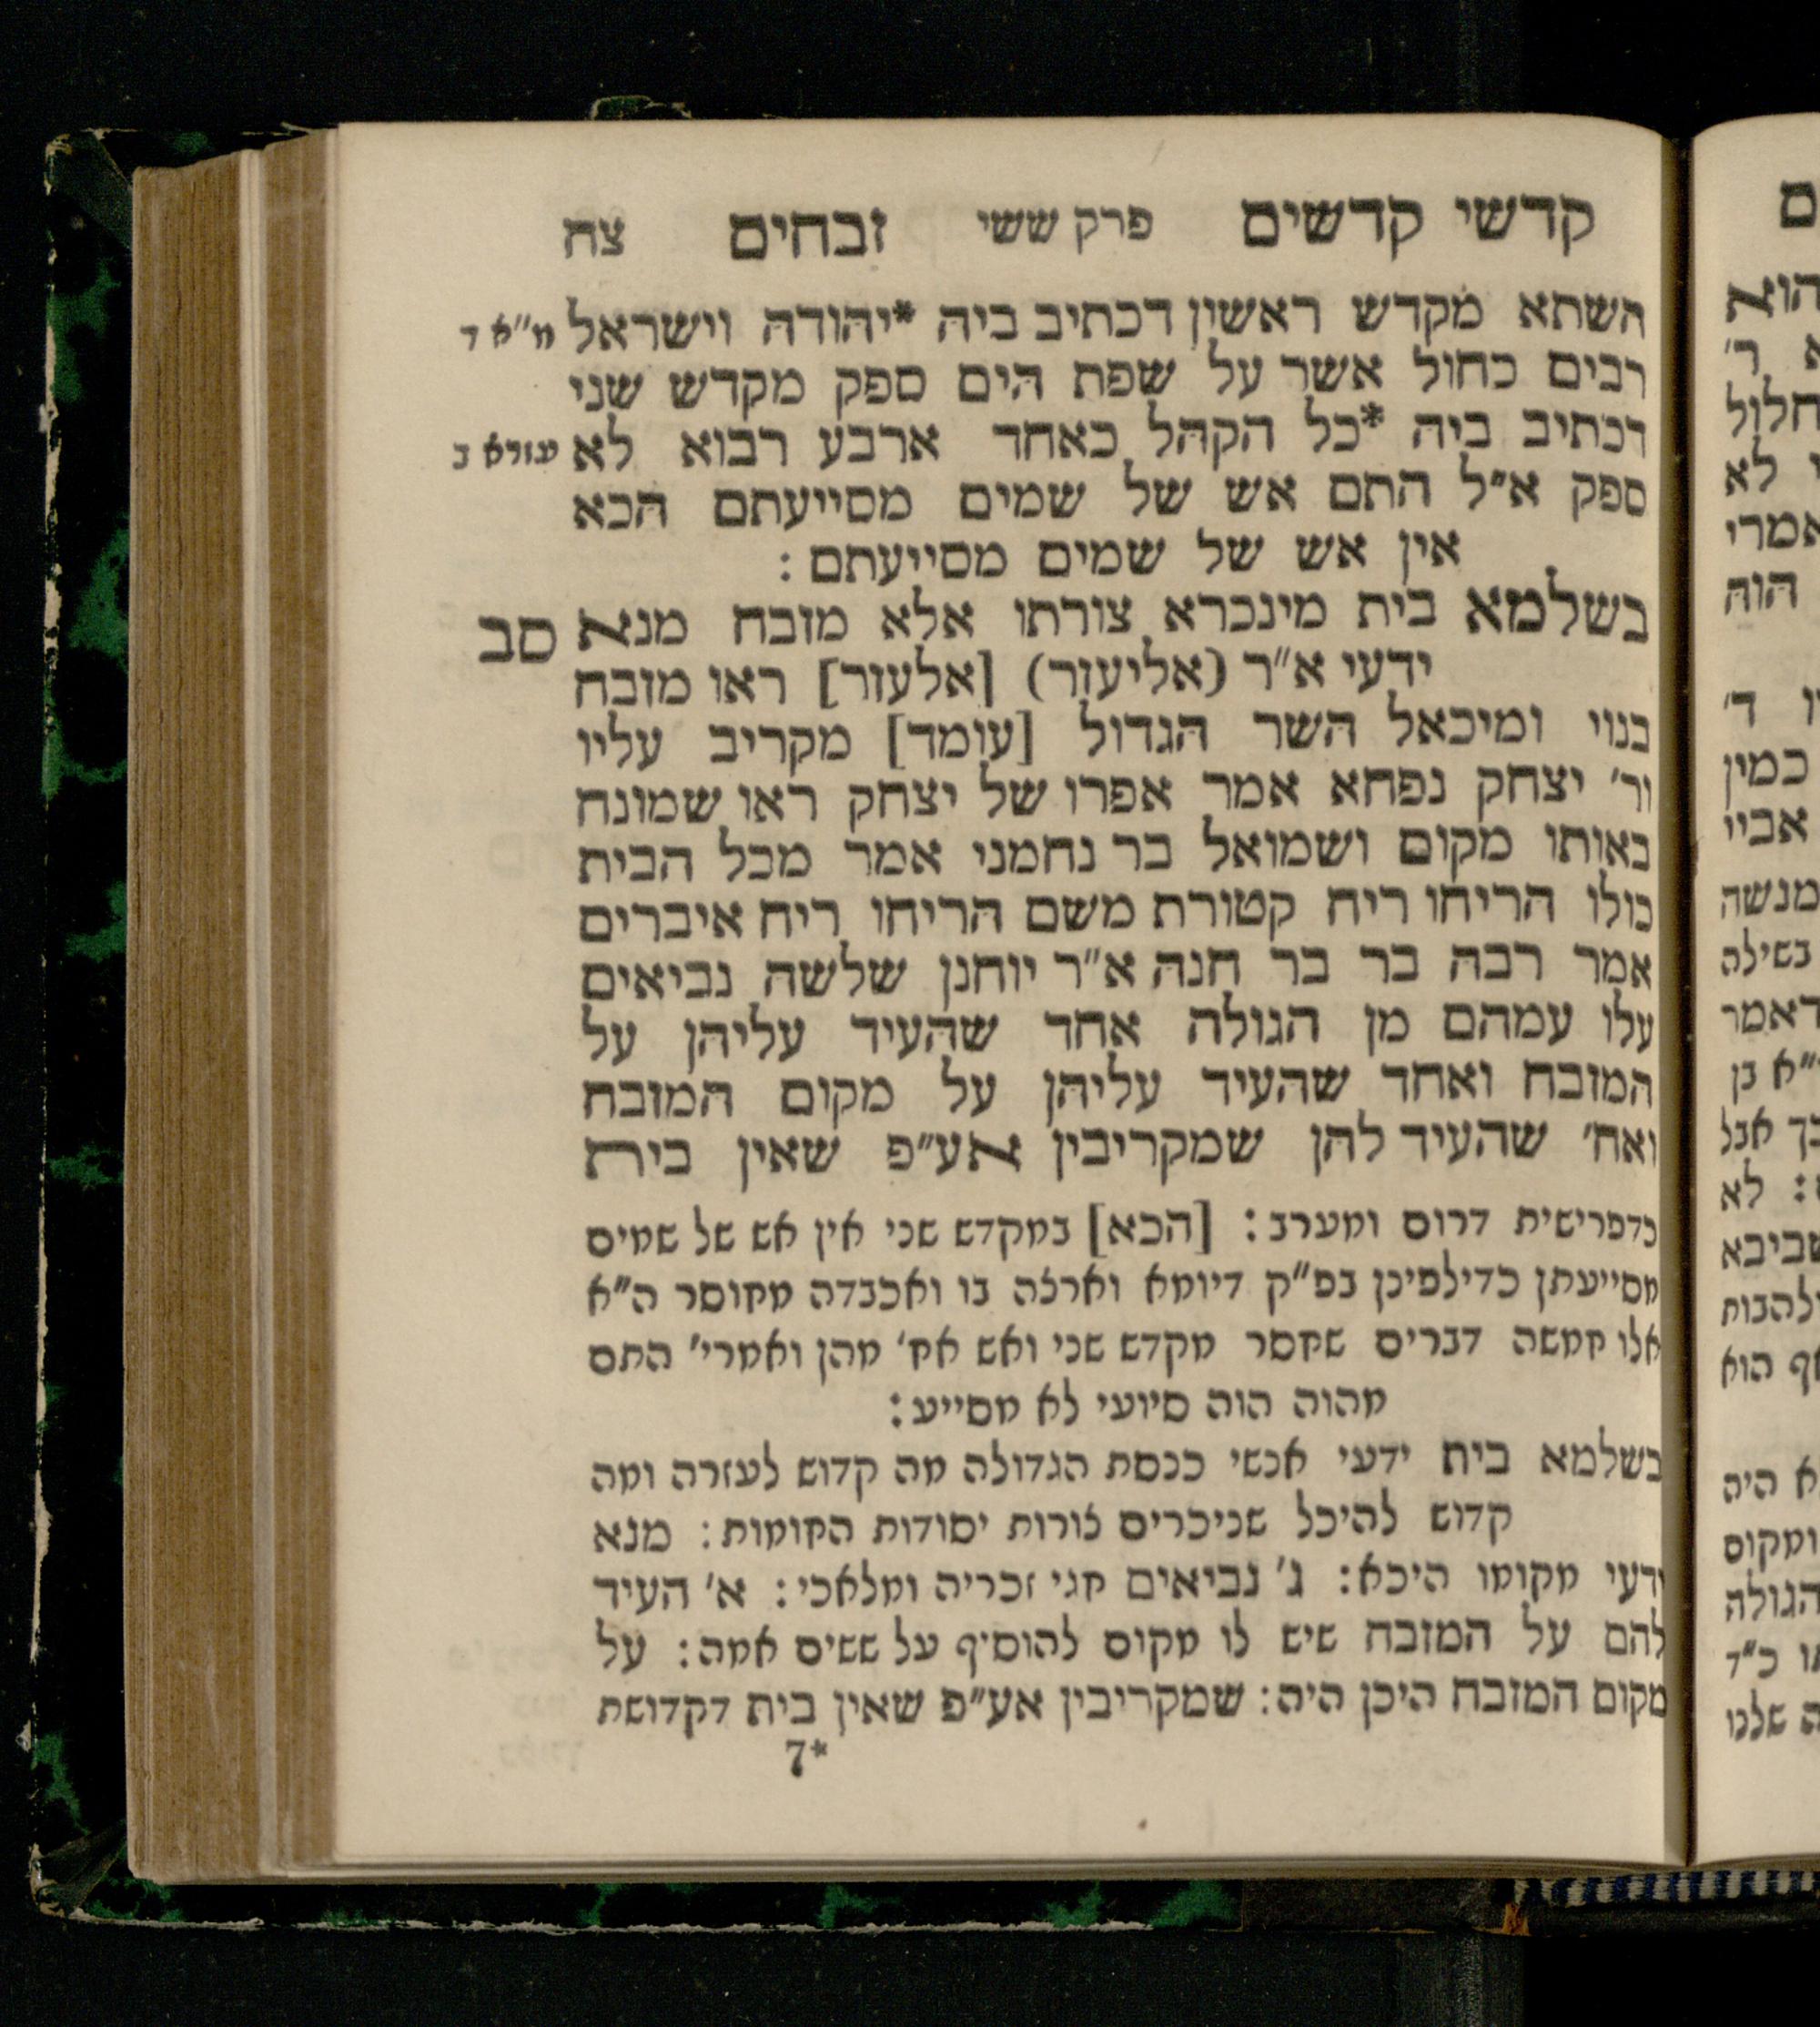 קדשי קדשים פרק ששי זבחים צח
השתא מקדש ראשון דכתיב ביה *יהודה וישראל מ"א ד
רבים כחול אשר על שפת הים ספק מקדש שני
דכתיב ביה *כל הקהל כאחד ארבע רבוא לא עזרא ב
ספק א"ל התם אש של שמים מסייעתם הכא
אין אש של שמים מסייעתם :
בשלמא בית מינכרא צורתו אלא מזבח מנא סב
ידעי א"ר (אליעזר) [אלעזר] ראו מזבח
בנוי ומיכאל השר הגדול [עומד] מקריב עליו
ור' יצחק נפחא אמר אפרו של יצחק ראו שמונח
באותו מקום ושמואל בר נחמני אמר מכל הבית
כולו הריחו ריח קטורת משם הריחו ריח איברים
אמר רבה בר בר חנה א"ר יוחנן שלשה נביאים
עלו עמהם מן הגולה אחד שהעיד עליהן על
המזבח ואחד שהעיד עליהן על מקום המזבח
ואח' שהעיד להן שמקריבין אע"פ שאין בית
כדפרישית דרום ומערב : [הכא] במקדש שני אין אש של שמים
מסייעתן כדילפינן בפ"ק דיומא וארצה בו ואכבדה מחוסר ה"א
אלו חמשה דברים שחסר מקדש שני ואש אח' מהן ואמרי' התם
מהוה הוה סיועי לא מסייע :
בשלמא בית ידעי אנשי כנסת הגדולה מה קדוש לעזרה ומה
קדוש להיכל שניכרים צורות יסודות החומות : מנא
ידעי מקומו היכא : ג' נביאים חגי זכריה ומלאכי : א' העיד
להם על המזבח שיש לו מקום להוסיף על ששים אמה : על
מקום המזבח היכן היה : שמקריבין אע"פ שאין בית דקדושת
7*
ם
הוא
א ר'
חלול
לא
אמרי
הוה
ד'
כמין
אביי
מנשה
בשילה
דאמר
"א בן
אבל
: לא
שביבא
ולהבות
אף הוא
א היה
ומקום
הגולה
או כ"ד
ה שלנו